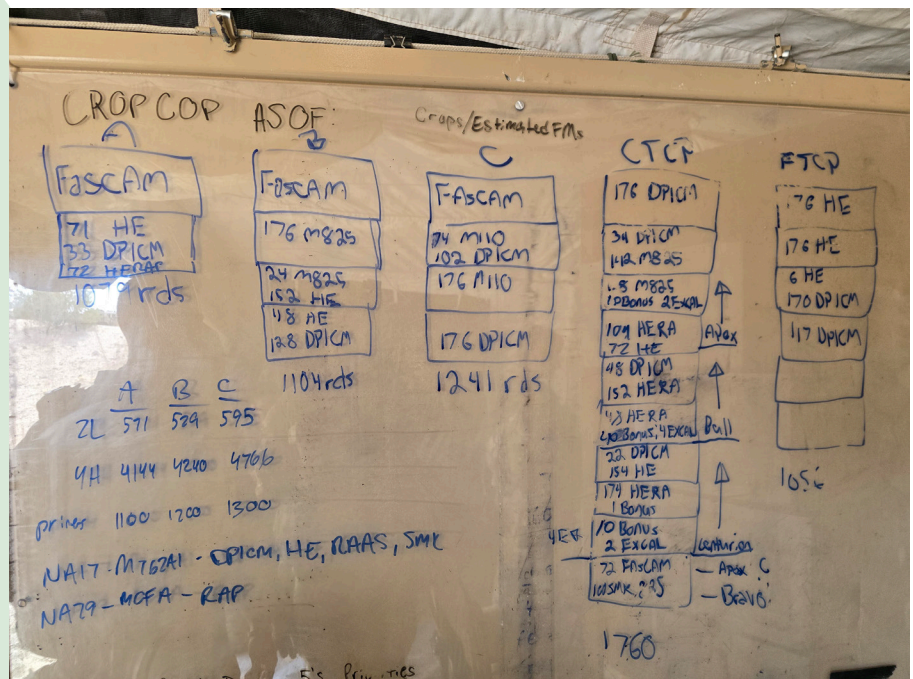 CROP COP ASOF:
Crops/Estimated FMs
A
FASCAM
71 HE
33 DPICM
72 HERAP
1079 rds
B
FASCAM
176 M825
24 M825
152 HE
48 HE
128 DPICM
1104 rds
C
FASCAM
74 M110
102 DPICM
176 M110
176 DPICM
1241 rds
CTCP
176 DPICM
34 DPICM
142 M825
M825
Bonus 2 EXCAL
104 HERA
72 HE
Apex
48 DPICM
152 HERA
HERA
Bonus, 4 EXCAL
Bull
22 DPICM
154 HE
174 HERA
1 Bonus
10 Bonus
2 EXCAL
Centurion
72 FASCAM
- Apex C
- Bravo
1760
FTCP
176 HE
176 HE
6 HE
170 DPICM
117 DPICM
1056
A B C
2L 571 529 595
4H 4144 4240 4766
primes 1100 1200 1300
NA17 - M762A1 - DPICM, HE, RAAS, SMK
NA29 - MOFA - RAP